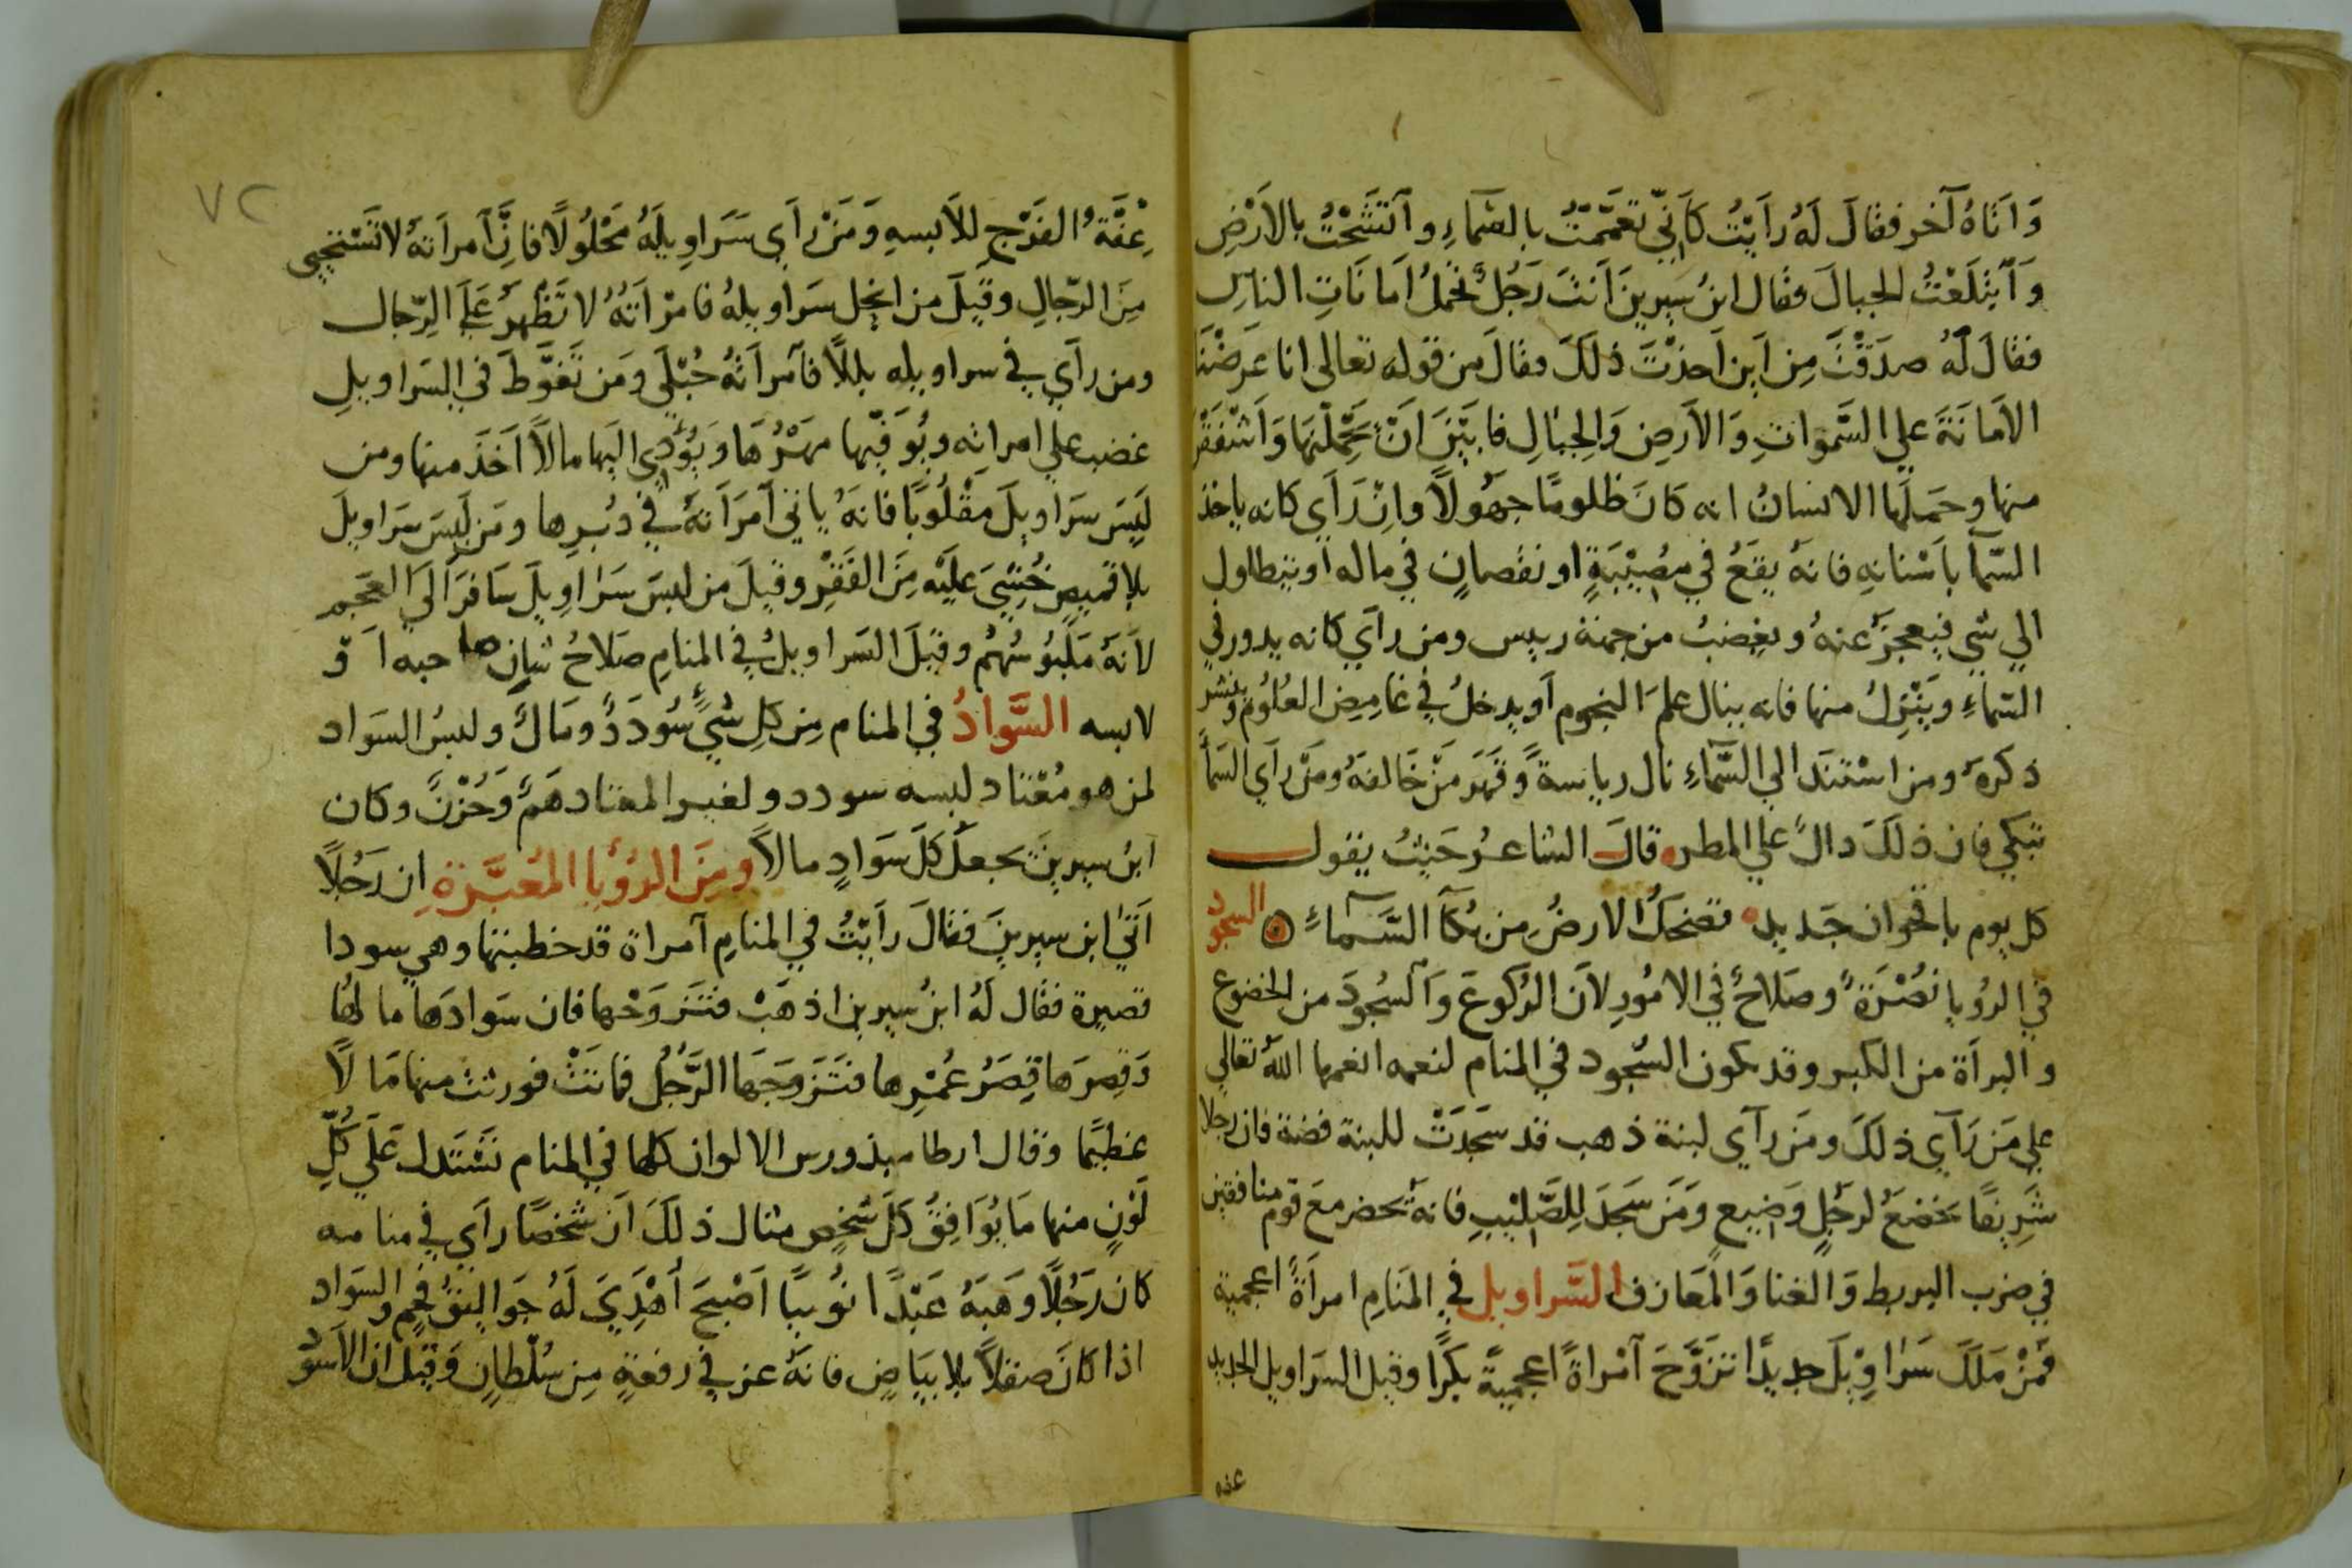 وَاَتَاهُ آخر فقَالَ لَهُ رَاَيْتُ كَاَنِّي تعَمَّمْتُ بالسَّمَاءِ واَتَّشَحْتُ بالاَرْضِ
وَابْتَلَعْتُ الجبالَ فقَال ابنُ سيرينَ اَنتَ رَجُلٌ تحْمِلُ اَمانَاتِ الناسِ
فقالَ لَهُ صدَقْتَ مِن اَين اَخذْتَ ذلَكَ فقالَ من قوله تعالى انا عَرَضْنَا
الاَمَانَةَ على السَّمواتِ وَالاَرضِ وَالجِبَالِ فابَيْنَ اَنْ يَحْمِلْنَهَا وَاَشْفَقْنَ
منها وحَمَلَهَا الانسانُ انه كَانَ ظلومًا جهُولًا وان رَاَي كانه ياخذ
السّمآ باَسْنانِهِ فانهُ يقَعُ في مُصِيْبَةٍ او نقْصانٍ في ماله اَو يتطاول
الي شي فيعجز عنهُ ويغضبُ من جهة رييس ومن رآي كانه يدور في
السّماءِ ويَنْزِلُ منها فانه ينال علمَ النجوم اَو يدخلُ في غامِضِ العُلُومِ وينشر
ذكره ومن اسْتَندَ الي السَّمَاءِ نال رياسةً وَقَهَر مَنْ خَالفهُ ومَنْ رآي السّمآ
تبكي فان ذلَكَ دالٌ علي المطر قال الشاعرُ حَيْثُ يقول
كل يوم باقحوان جَديد تضحكُ الارضُ مِن بُكآ السَّمَاءِ السجود
في الرُويا نُصْرَةٌ وصَلاحٌ في الامُورِ لاَن الرُكوعَ وَالسُجُودَ من الخضوع
والبراَة من الكبر وقد يكون السّجود في المنام لنعمه انعمها اللهُ تعالي
علي مَن رَآي ذلَكَ ومَن رآي لبنة ذهب قد سَجَدَتْ للبنة فضة فان رجلا
شَرِيفًا يخضعُ لرجُلٍ وَضِيعٍ وَمَن سَجَدَ لِلصَّلِيْبِ فانهُ يحضر معَ قوم منافقين
في ضرب البربط وَالغنا وَالمَعَازف السَّراويل في المَنامِ امراَةٌ اعجمية
فَمَنْ مَلَكَ سَرَاوِيْلَ جديدًا تزَوَّجَ اَمْراةً اعجميةً بكرًا وقيل السَراويل الجديد
عفه
٧٢
عِفَّةُ الفَرْجِ للاَبسهِ وَمَنْ رَاَي سَرَاوِيلَهُ مَحْلُولًا فانِّ اَمراَتهُ لاتَسْتحيي
مِنَ الرّجالِ وقيلَ من انحل سَراويلهُ فامْراَتهُ لا تَظْهرُ عَلَي الرّجال
ومن رآي في سراويله بللًا فاَمراَتُهُ حُبْلَي ومَن تَغوَّطَ في السَراويلِ
غضب علي امراته ويُوَفّيها مهْرُهَا وَيُؤَدّي اليَها مالًا اَخَذَ منها ومن
لَبِسَ سَرَاويلَ مَقْلُوبًا فانهُ ياتي اَمرَاَتهُ في دُبُرِها ومَن لَبِسَ سَراويلَ
بلا قميصٍ خُشِيَ عليَه مِنَ الفَقْرِ وقيلَ من لبسَ سَرَاوِيلَ سَافرَ اَلي العَجَم
لاَنهُ مَلبُوسُهُمْ وقيلَ السَراويلُ في المنامِ صَلاحُ شانِ صاحبه اَوْ
لابسه السَّوادُ في المنام مِن كلِ شيٍ سُودَدٌ ومَالٌ ولبسُ السَواد
لمن هو مُعْتاد لبسه سودد ولغير المعتاد هَمٌّ وَحُزْنٌ وكان
ابنُ سيرينَ يجعلُ كلَّ سَوَادٍ مالًا ومِنَ الرُؤْيا المُعَبَّرَةِ ان رَجُلًا
اَتي ابن سيرينَ فقالَ رَاَيْتُ في المنامِ اَمراة قد خطبتها وهي سودا
قصيرة فقال لَهُ ابنُ سيرين اذهَبْ فتزوَجْها فان سَوادَها مالهُا
وَقِصرَها قِصَرُ عُمْرِها فتَزَوَجَهَا الرَّجُلُ فماتَتْ فورثت منها مَالًا
عظيمًا وقال ارطاميذورس الالوان كلها في المنام تَسْتَدل عَلَي كُلِّ
لَوْنٍ منها مَا يُوَافِقُ كلَ شَخصٍ مثال ذلَكَ اَنَ شَخصًا راَي في منامه
كان رَجُلًا وَهَبَهُ عَبْدًا نُوبيًا اَصْبَحَ اُهْدِيَ لَهُ جَوالِقُ فحمٍ والسَواد
اذا كانَ صقلًا بلا بيَاضٍ فانهُ عز في رفعةٍ مِن سُلْطانٍ وقيل ان الاَسْوَد